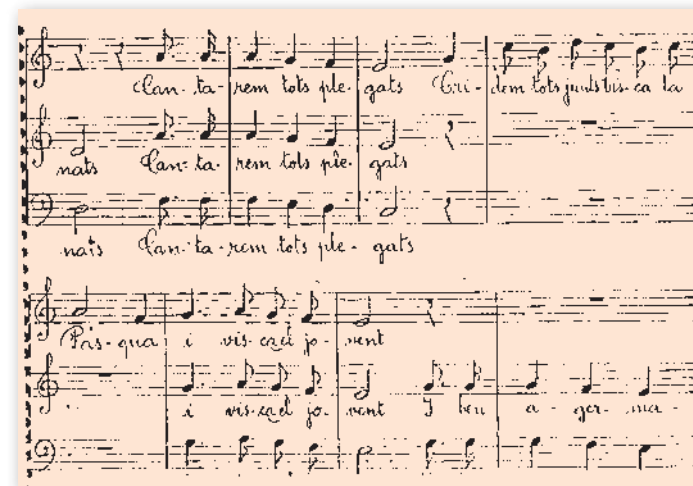 Can-ta-rem tots ple-gats Cri-dem tots junts vis-ca la
nats Can-ta-rem tots ple-gats
nats Can-ta-rem tots ple-gats
Pas-qua i vis-cael jo-vent
i vis-cael jo-vent I ben a-ger-ma-